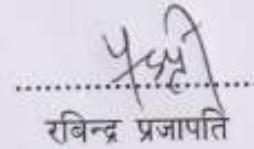 रबिन्द्र प्रजापति